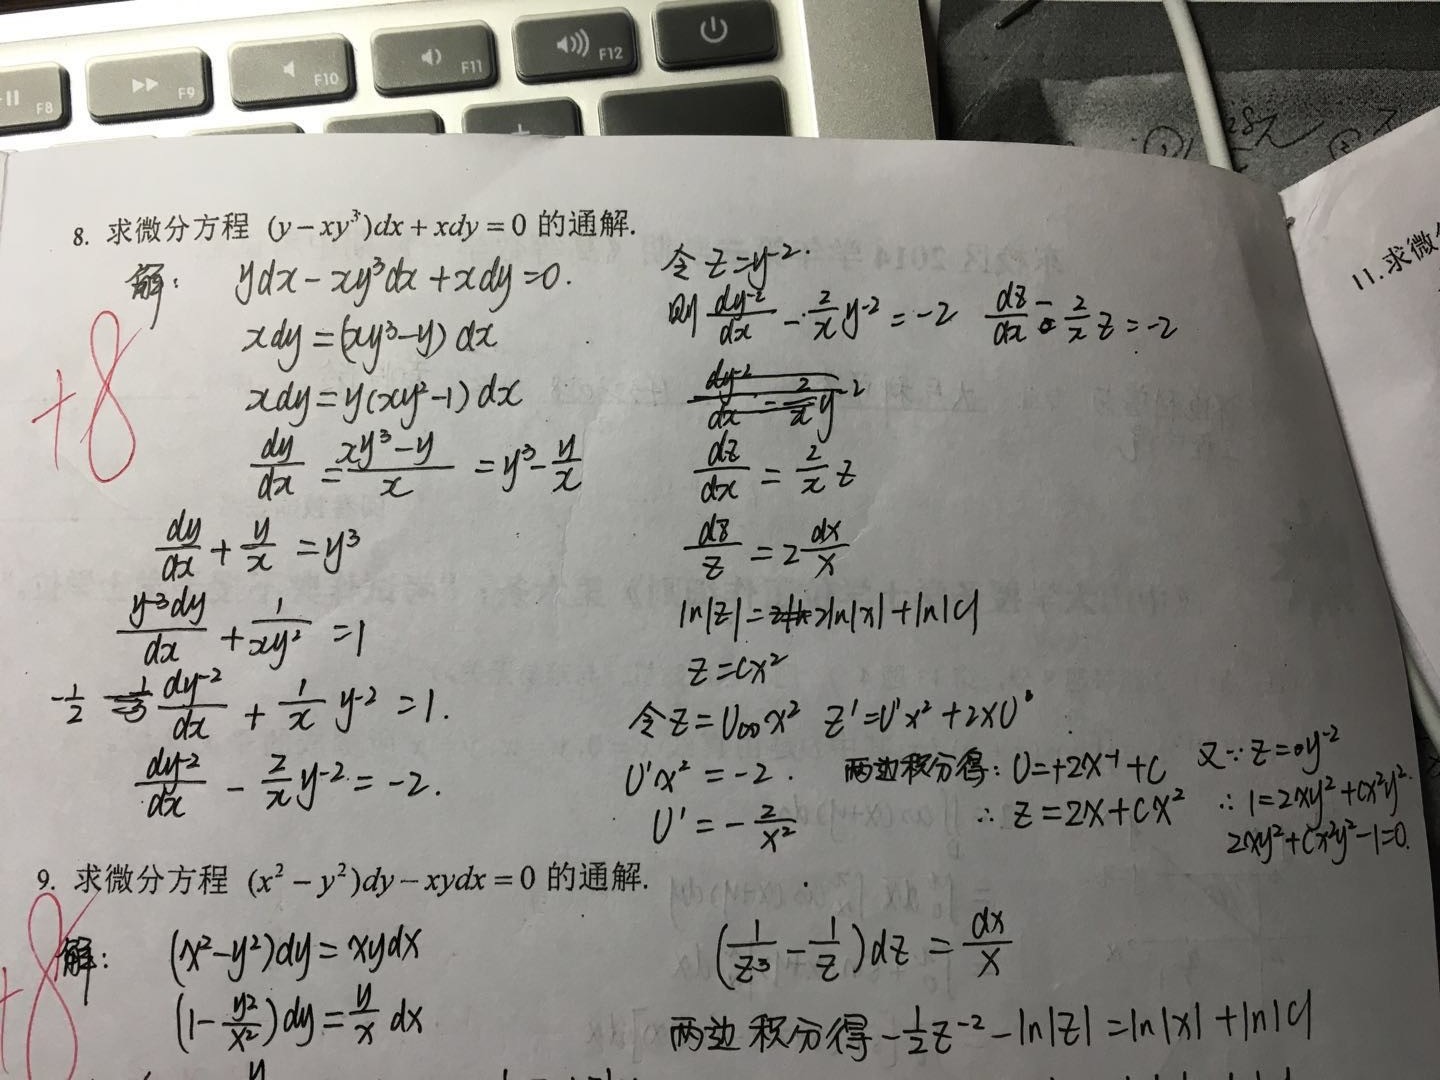 F8
F9
F10
F11
F12
8. 求微分方程 (y-xy³)dx+xdy=0 的通解.
解: ydx-xy³dx+xdy=0.
xdy=(xy³-y)dx
xdy=y(xy²-1)dx
dy/dx=(xy³-y)/x=y³-y/x
dy/dx+y/x=y³
y⁻³dy/dx+1/(xy²)=1
-1/2 dy⁻²/dx+1/x y⁻²=1.
dy⁻²/dx-2/x y⁻²=-2.
+8
令z=y⁻².
则 dy⁻²/dx-2/x y⁻²=-2 dz/dx-2/x z=-2
dz/dx=2/x z
dz/z=2dx/x
ln|z|=2ln|x|+ln|C|
z=Cx²
令z=U(x)x² z'=U'x²+2xU
U'x²=-2. 两边积分得: U=+2x⁻¹+C 又∵z=y⁻²
U'=-2/x² ∴z=2x+Cx² ∴1=2xy²+Cx²y².
2xy²+Cx²y²-1=0.
11.求微
9. 求微分方程 (x²-y²)dy-xydx=0 的通解.
+8
解: (x²-y²)dy=xydx
(1-y²/x²)dy=y/x dx
(1/z³-1/z)dz=dx/x
两边积分得-1/2z⁻²-ln|z|=ln|x|+ln|C|